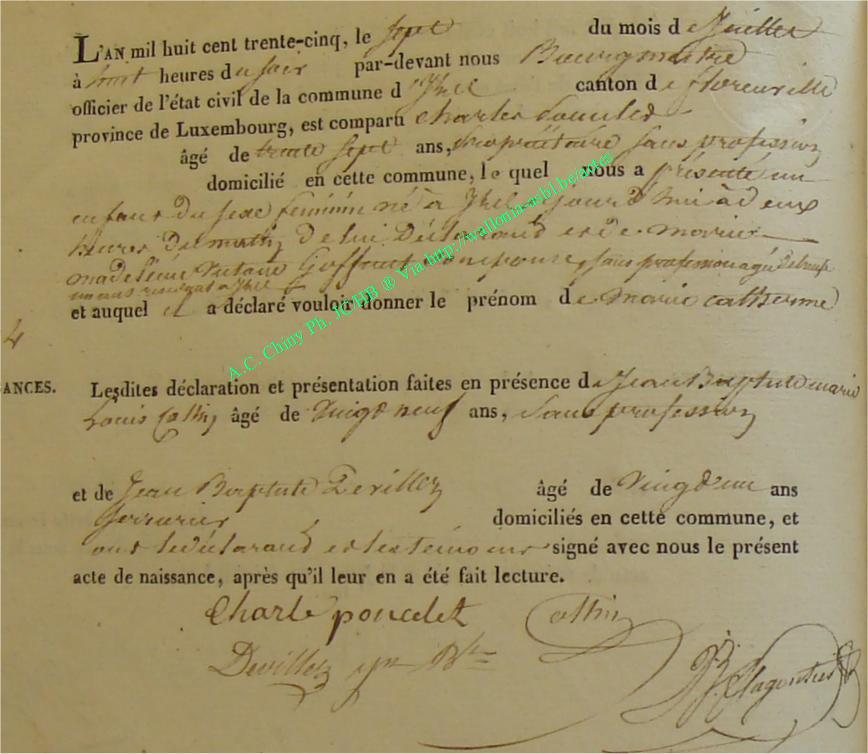 L'AN mil huit cent trente-cinq, le sept du mois de Juillet
à huit heures du soir par-devant nous Bourgmestre
officier de l'état civil de la commune d'Izel canton de florenville
province de Luxembourg, est comparu Charles Poncelet
âgé de trente sept ans, propriétaire sans profession
domicilié en cette commune, le quel nous a présenté un
enfant du sexe féminin né à Izel jourd'hui à deux
heures du matin de lui Déclarand et de
madeleine Goffinet son épouse, sans profession agé de
un ans
et auquel il a déclaré vouloir donner le prénom de marie catherine
4
ANCES.
Lesdites déclaration et présentation faites en présence de Jean Baptiste marie
Louis Collin âgé de Vingt neuf ans, Sans profession
et de Jean Baptiste Devillez âgé de Vingt un ans
serrurier domiciliés en cette commune, et
ont le déclarand et les temoins signé avec nous le présent
acte de naissance, après qu'il leur en a été fait lecture.
Charle poncelet Collin
Devillez jn Bte
A.C. Chiny Ph. JC HB ® Via http://wallonia-asbl.be/actes